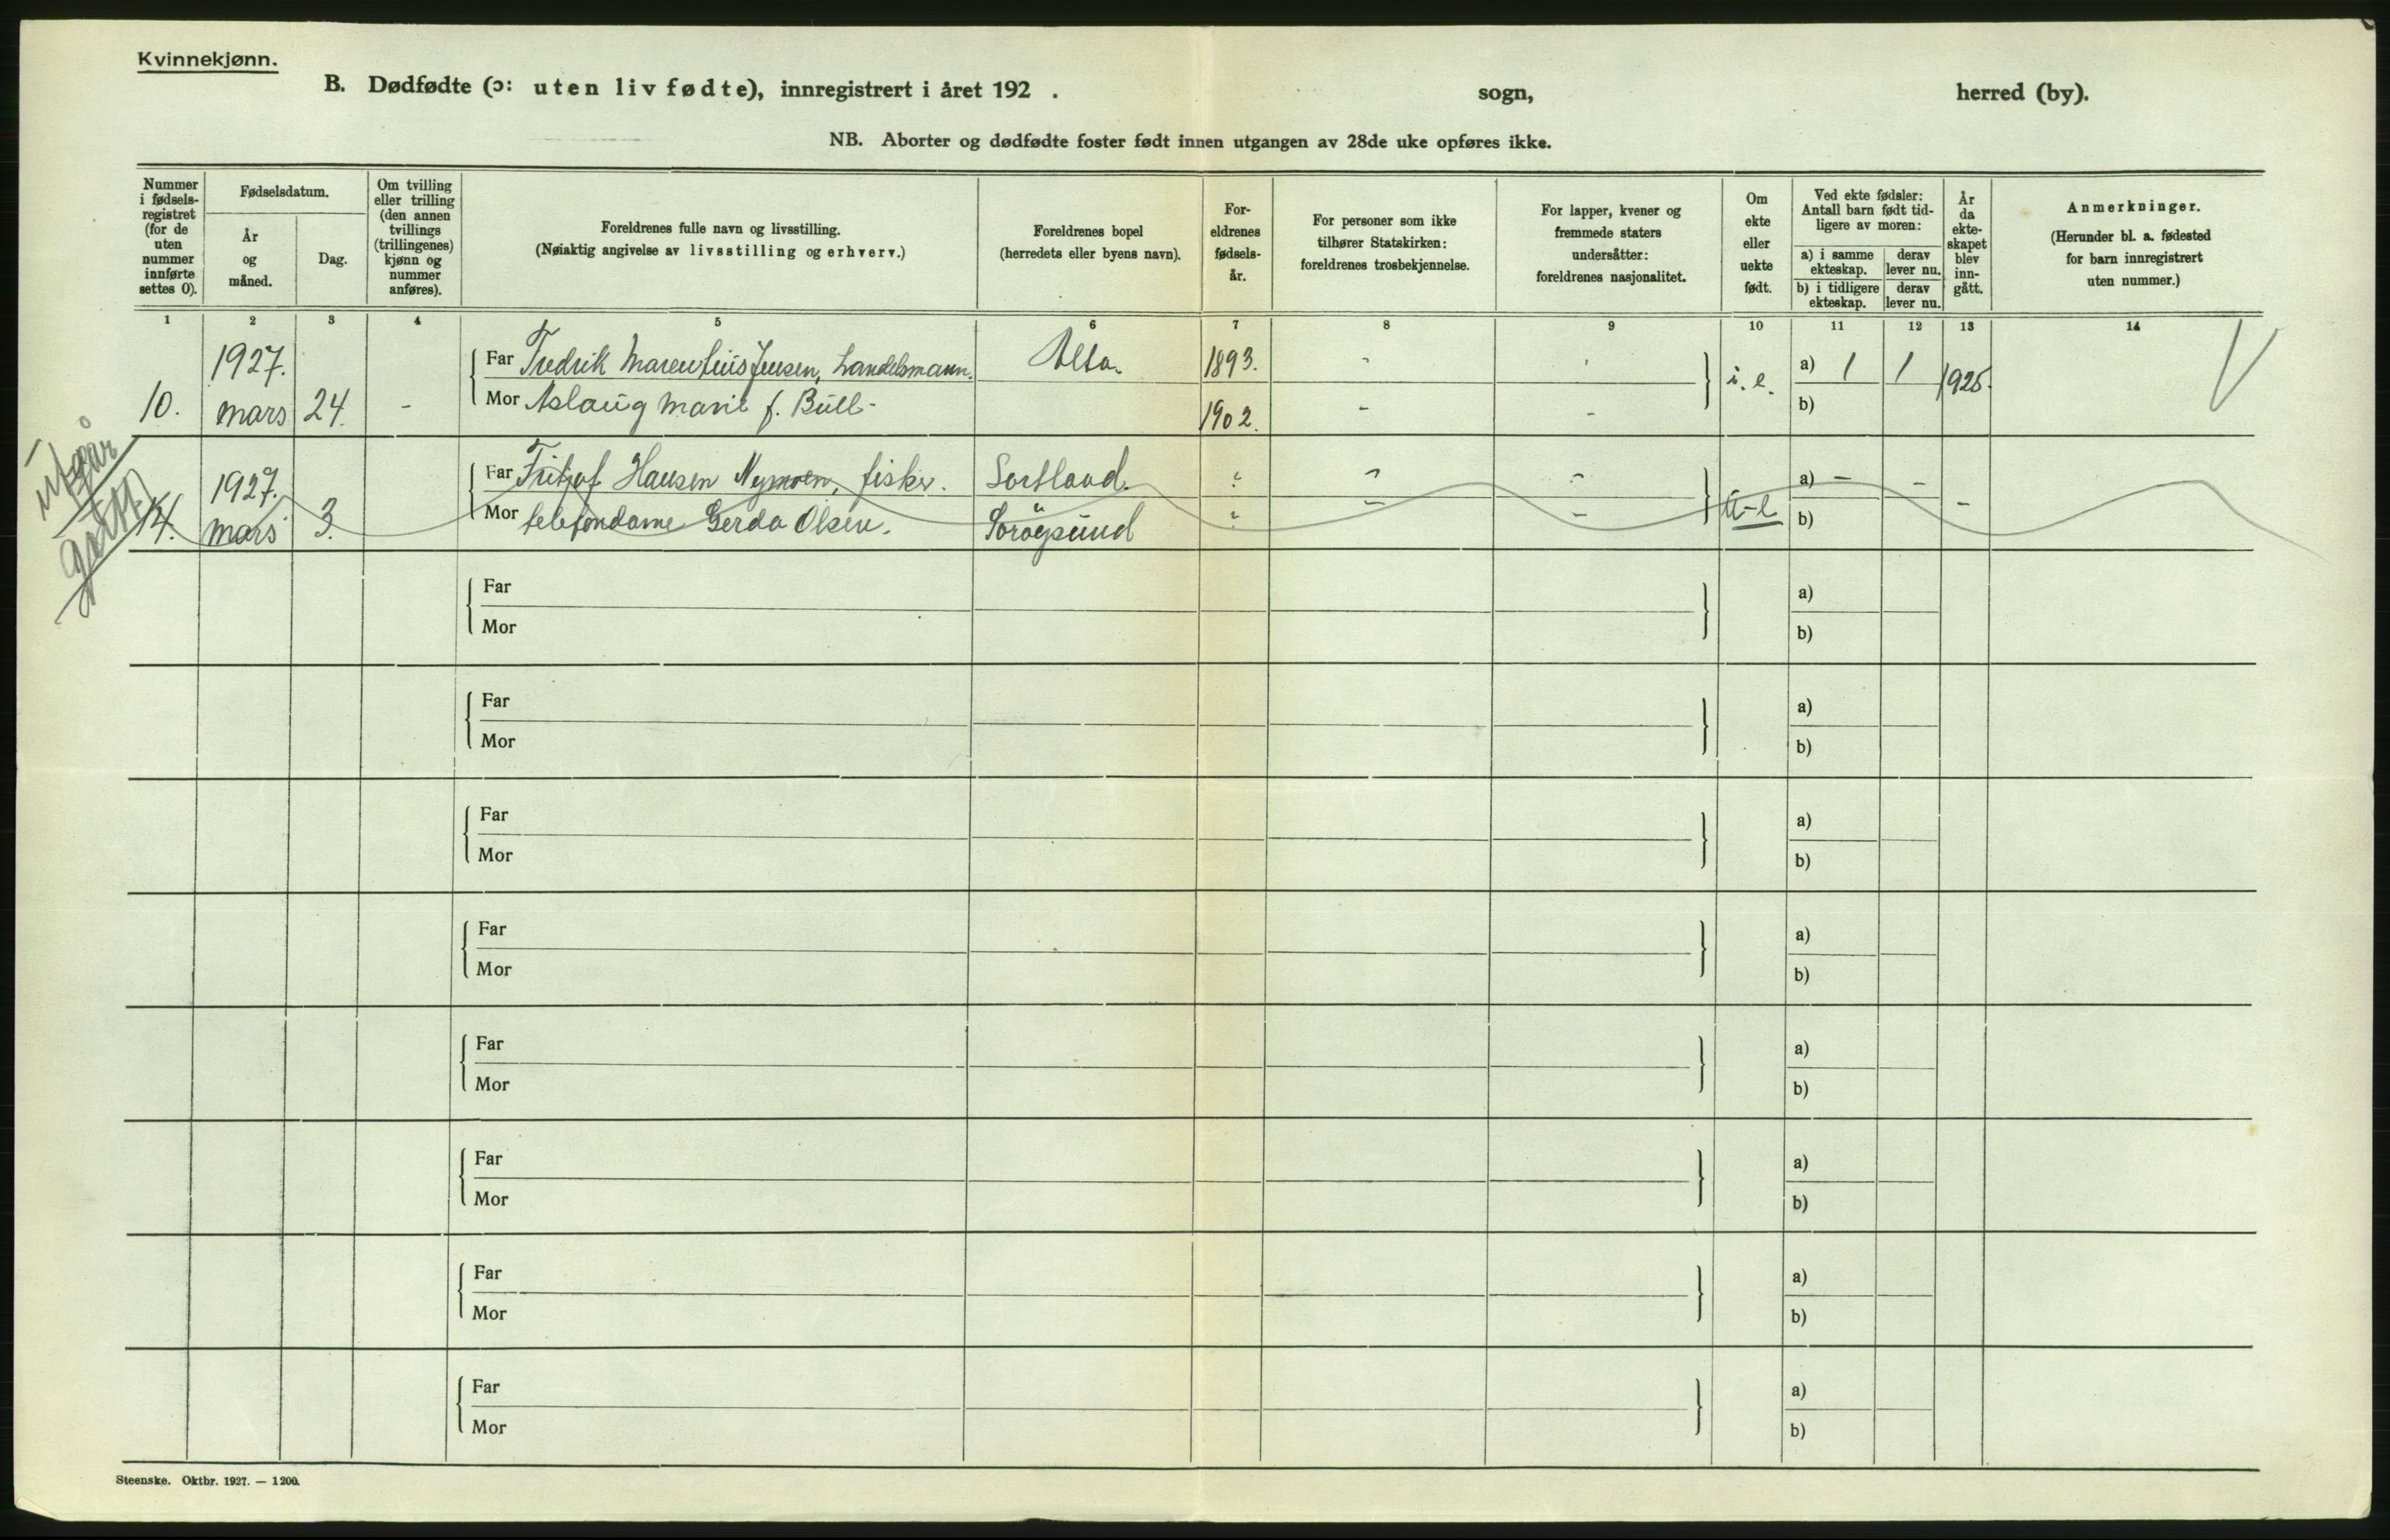 Kvinnekjønn.
B. Dødfødte (ɔ: uten liv fødte), innregistrert i året 192 . sogn, herred (by).
NB. Aborter og dødfødte foster født innen utgangen av 28de uke opføres ikke.
Nummer i fødsels-registret (for de uten nummer innførte settes 0).
Fødselsdatum.
År og måned.
Dag.
Om tvilling eller trilling (den annen tvillings (trillingenes) kjønn og nummer anføres).
Foreldrenes fulle navn og livsstilling.
(Nøiaktig angivelse av livsstilling og erhverv.)
Foreldrenes bopel
(herredets eller byens navn).
For-eldrenes fødsels-år.
For personer som ikke tilhører Statskirken: foreldrenes trosbekjennelse.
For lapper, kvener og fremmede staters undersåtter: foreldrenes nasjonalitet.
Om ekte eller uekte født.
Ved ekte fødsler: Antall barn født tid-ligere av moren:
a) i samme ekteskap.
derav lever nu.
b) i tidligere ekteskap.
derav lever nu.
År da ekte-skapet blev inn-gått.
Anmerkninger.
(Herunder bl. a. fødested for barn innregistrert uten nummer.)
1 2 3 4 5 6 7 8 9 10 11 12 13 14
10. 1927. mars 24. - Far Fredrik Marentius Jensen, handelsmann. Alta. 1893. - - i. e. a) 1 1 1925.
Mor Aslaug Marie f. Bull - 1902. - - b)
utgår
14. 1927. mars 3. Far Fritjof Hansen Nymoen, fisker. Sortland. - - - u-e a) - - -
Mor telefondame Gerda Olsen. Söröysund - - - b)
Far a)
Mor b)
Far a)
Mor b)
Far a)
Mor b)
Far a)
Mor b)
Far a)
Mor b)
Far a)
Mor b)
Far a)
Mor b)
Far a)
Mor b)
Steenske. Oktbr. 1927. — 1200.